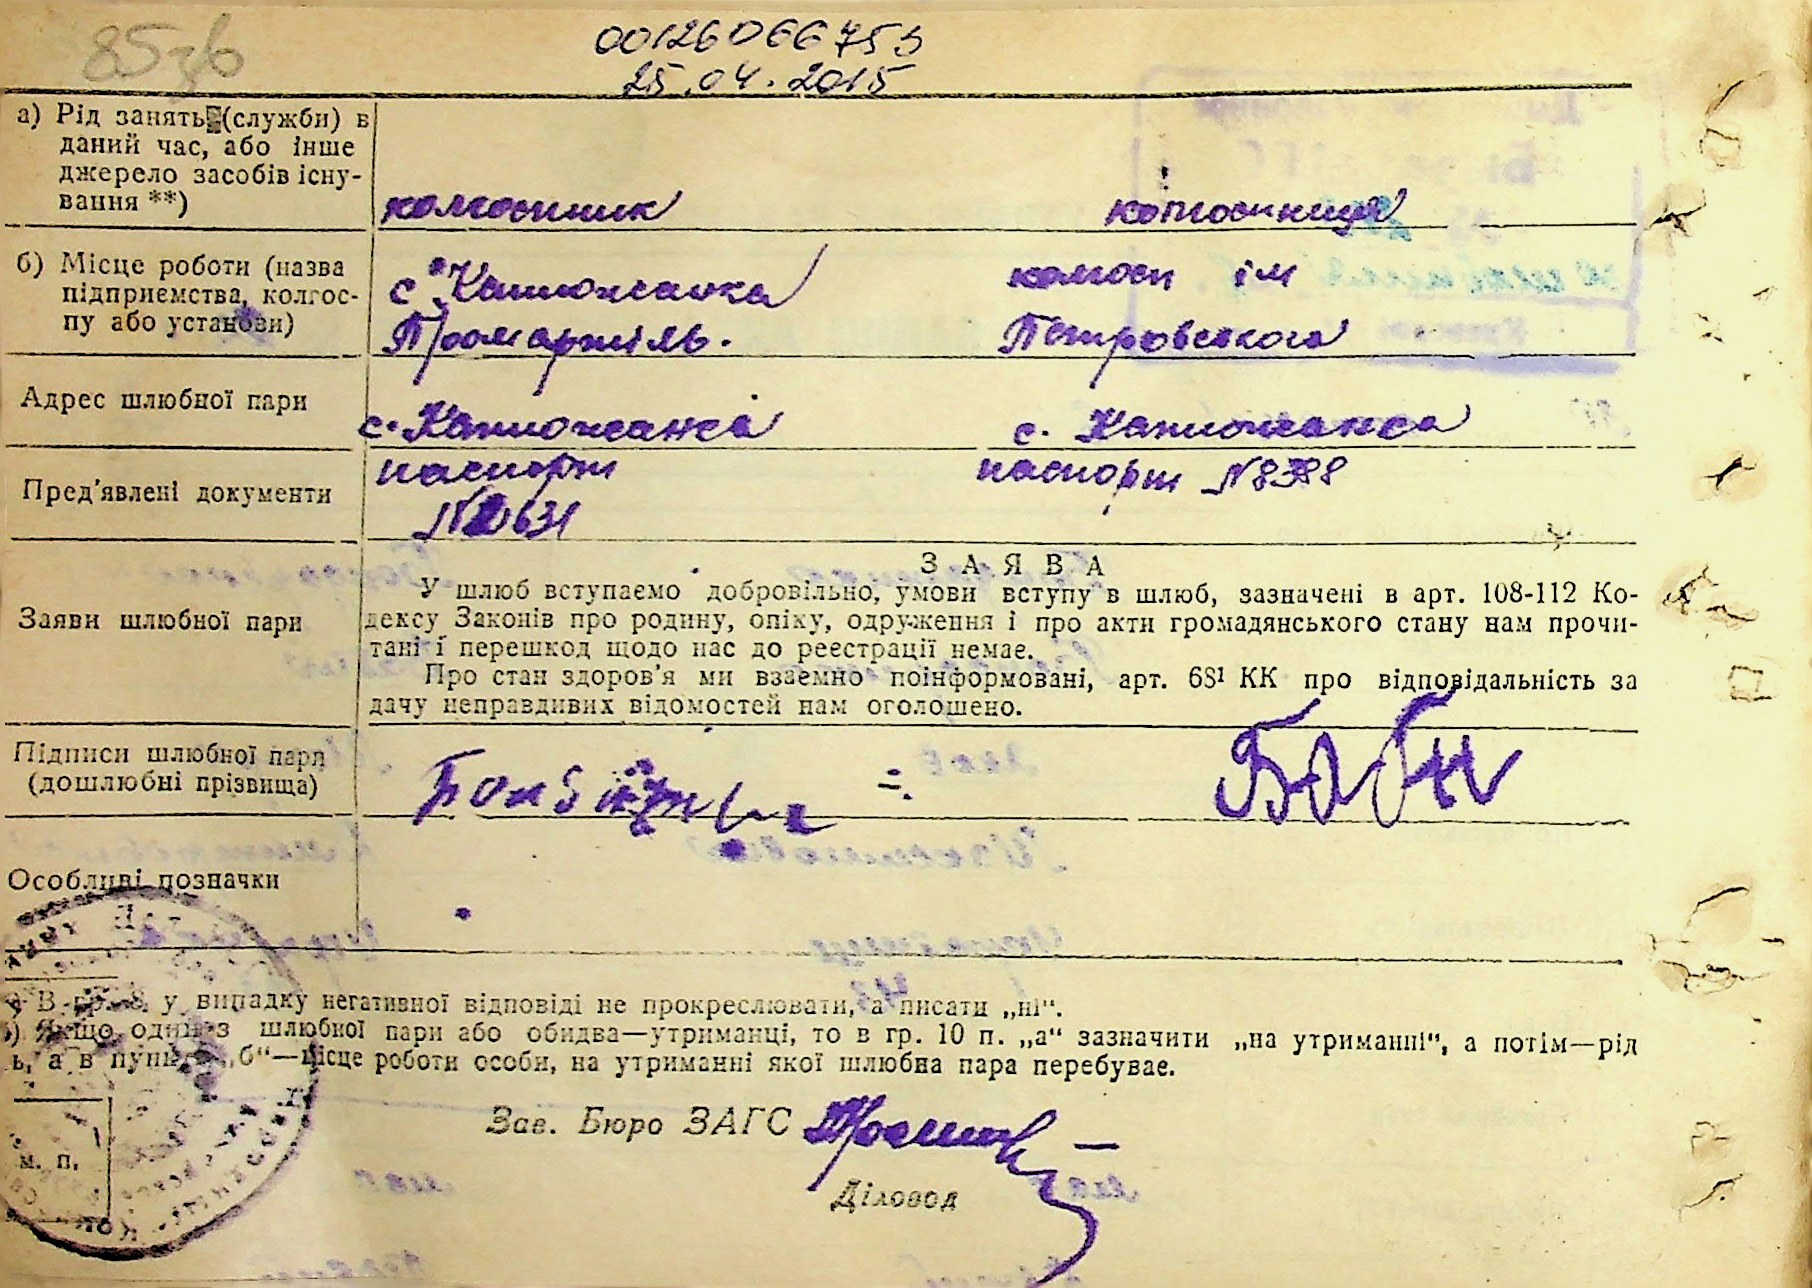 85зв
00126066753
25.04.2015
а) Рід занять (служби) в
даний час, або інше
джерело засобів існу-
вання **)
колгоспник колгосниця
б) Місце роботи (назва
підприємства, колгос-
пу або установи)
с Катюжанка колгосп ім
Промартіль. Петровського
Адрес шлюбної пари
с. Катюжанка с. Катюжанка
Пред'явлені документи
паспорт паспорт №8388
ЗАЯВА
У шлюб вступаємо добровільно, умови вступу в шлюб, зазначені в арт. 108-112 Ко-
дексу Законів про родину, опіку, одруження і про акти громадянського стану нам прочи-
тані і перешкод щодо нас до реєстрації немає.
Про стан здоров'я ми взаємно поінформовані, арт. 68¹ КК про відповідальність за
дачу неправдивих відомостей нам оголошено.
Заяви шлюбної пари
Підписи шлюбної пари
(дошлюбні прізвища)
Особливі позначки
*) В гр. 8, у випадку негативної відповіді не прокреслювати, а писати „ні“.
Якщо один з шлюбної пари або обидва—утриманці, то в гр. 10 п. „а“ зазначити „на утриманні“, а потім—рід
ь, а в пункті „б“—місце роботи особи, на утриманні якої шлюбна пара перебуває.
Зав. Бюро ЗАГС
м. п.
Діловод